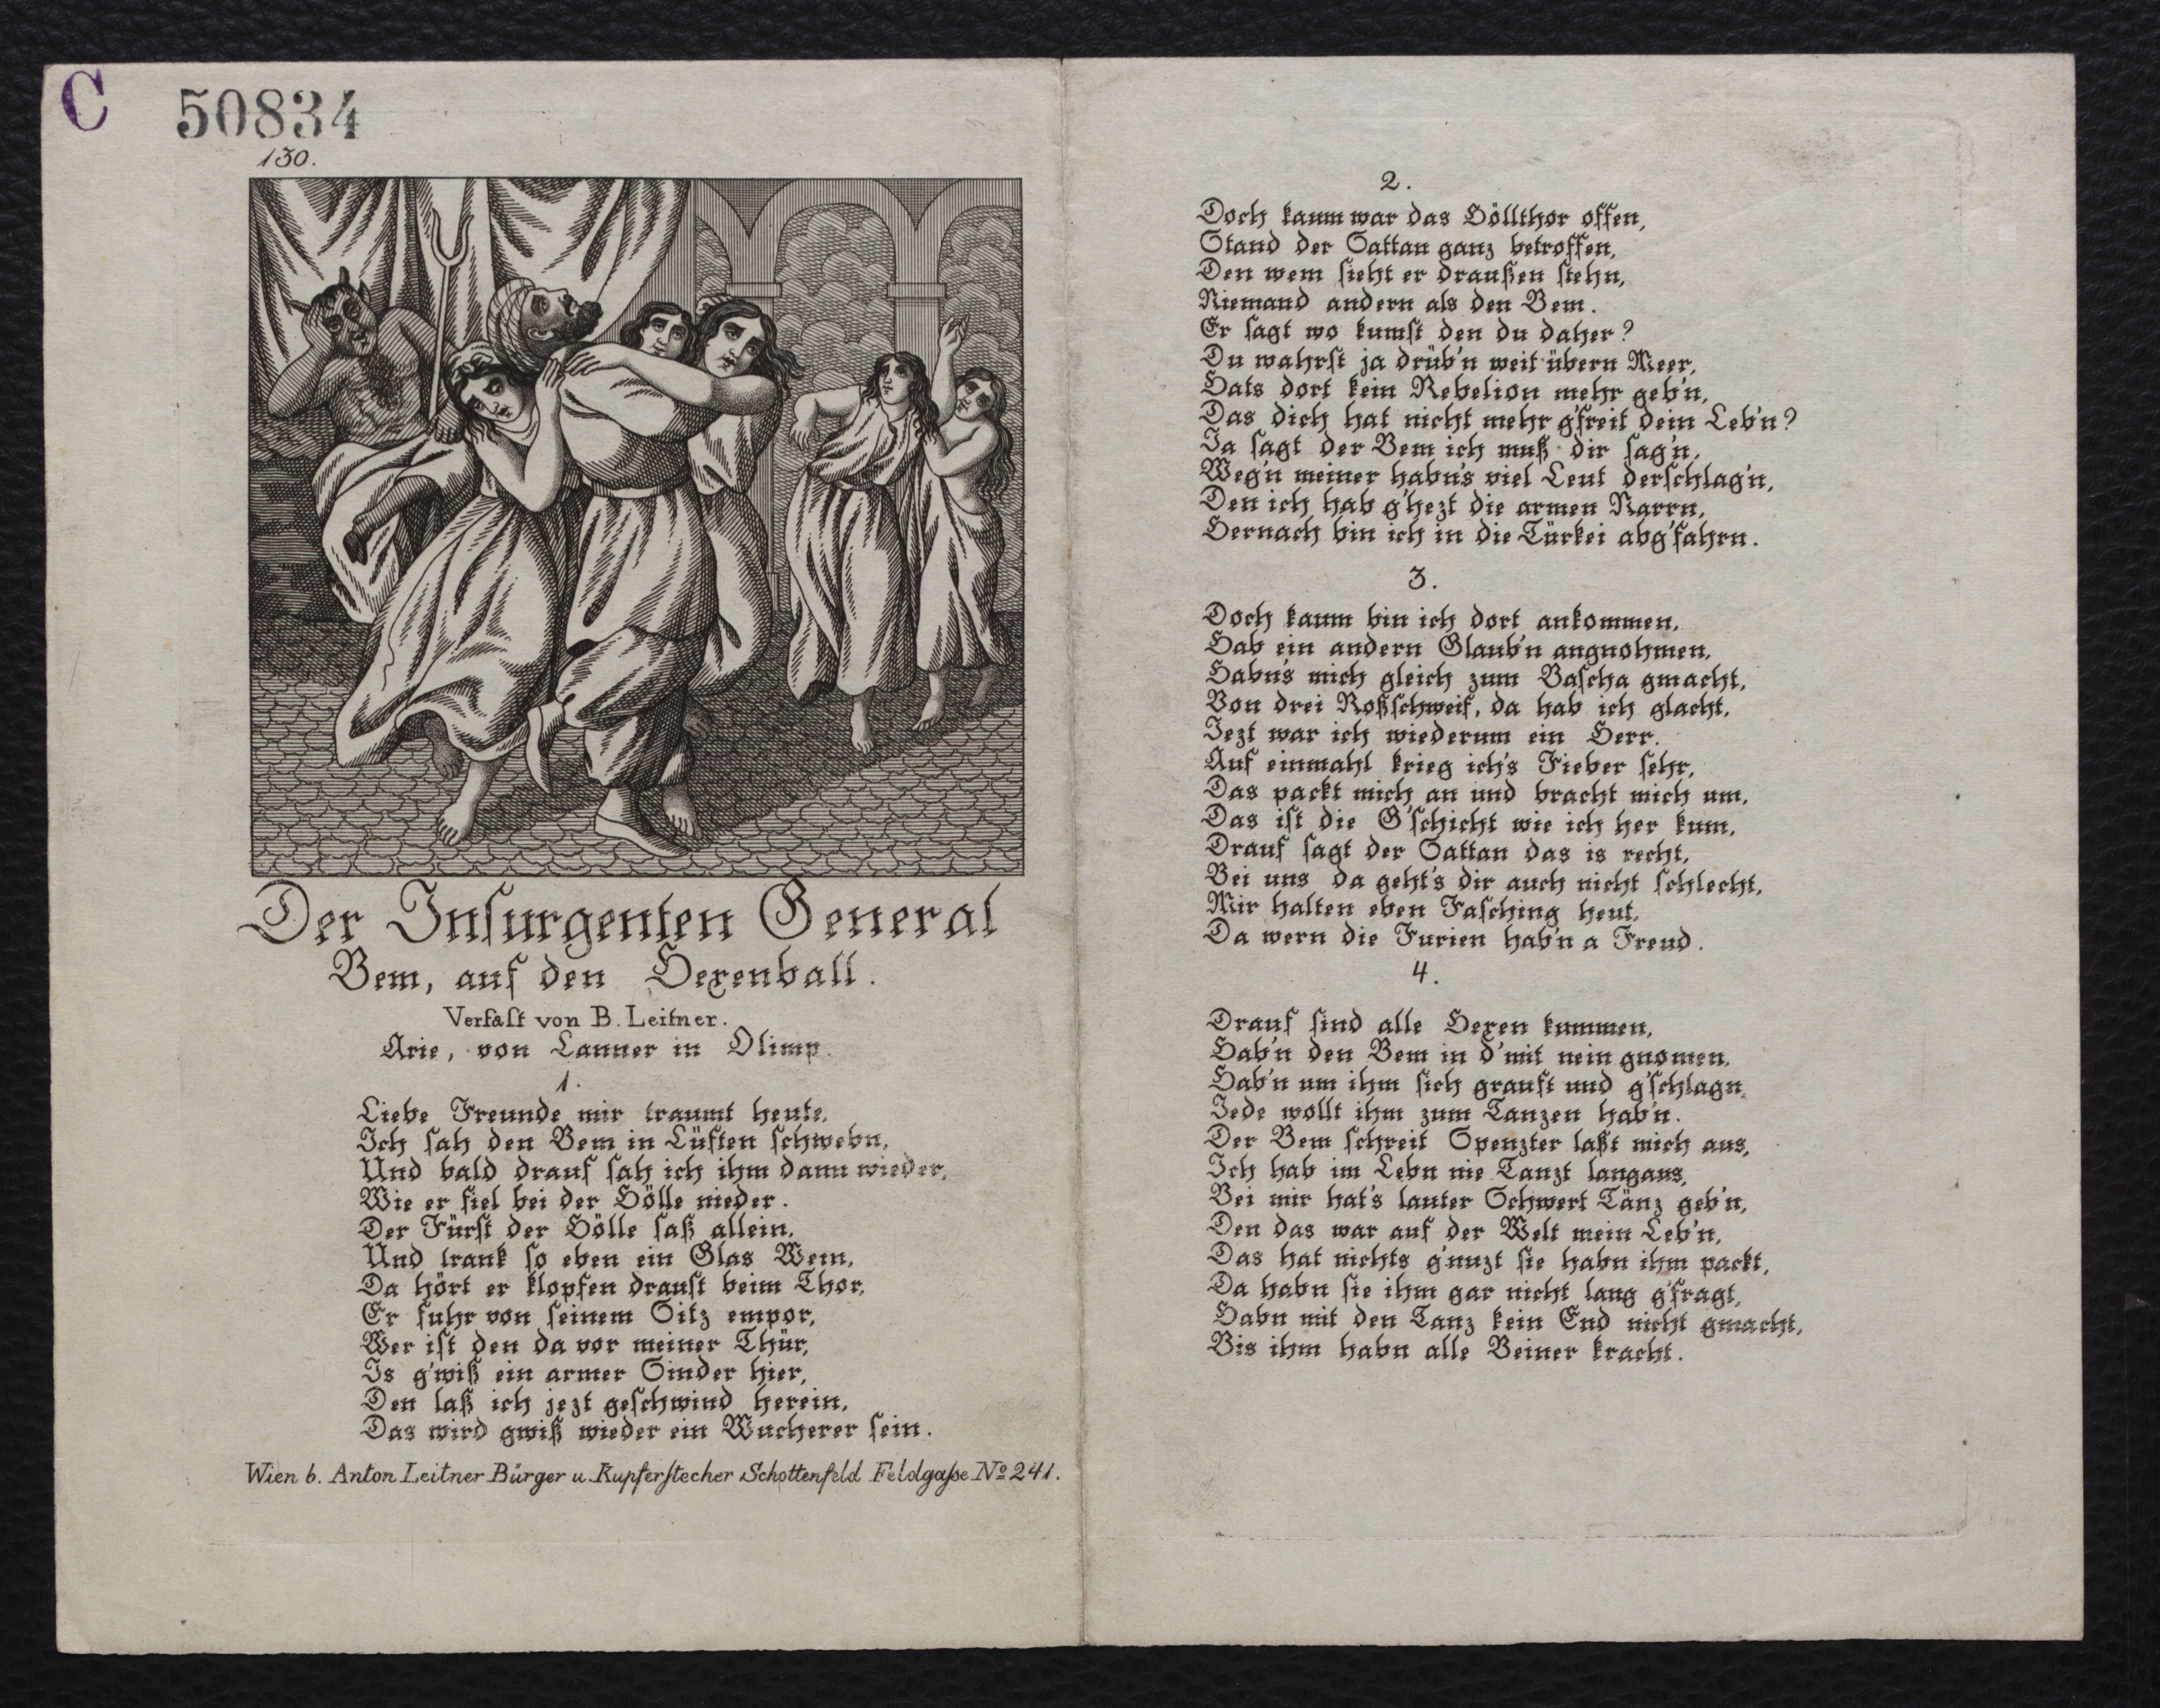 C 50834
130.
Der Insurgenten General
Bem, auf den Hexenball.
Verfaſt von B. Leitner.
Arie, von Lanner in Olimp.
1.
Liebe Freunde mir traumt heute,
Ich ſah den Bem in Lüften ſchwebn,
Und bald drauf ſah ich ihm dann wieder,
Wie er fiel bei der Hölle nieder.
Der Fürſt der Hölle ſaß allein,
Und trank ſo eben ein Glas Wein,
Da hört er klopfen drauſt beim Thor,
Er fuhr von ſeinem Sitz empor,
Wer iſt den da vor meiner Thür,
Is g'wiß ein armer Sinder hier,
Den laß ich jezt geſchwind herein,
Das wird gwiß wieder ein Wucherer ſein.
Wien b. Anton Leitner Bürger u. Kupferſtecher Schottenfeld Feldgaſse No 241.
2.
Doch kaum war das Höllthor offen,
Stand der Sattan ganz betroffen,
Den wem ſieht er draußen ſtehn,
Niemand andern als den Bem.
Er ſagt wo kumſt den du daher?
Du wahrſt ja drüb'n weit übern Meer,
Hats dort kein Rebelion mehr geb'n,
Das dich hat nicht mehr g'freit dein Leb'n?
Ja ſagt der Bem ich muß dir ſag'n,
Weg'n meiner habn's viel Leut derſchlag'n,
Den ich hab g'hezt die armen Narrn,
Hernach bin ich in die Türkei abg'fahrn.
3.
Doch kaum bin ich dort ankommen,
Hab ein andern Glaub'n angnohmen,
Habn's mich gleich zum Baſcha gmacht,
Von drei Roßſchweif, da hab ich glacht,
Jezt war ich wiederum ein Herr.
Auf einmahl krieg ich's Fieber ſehr,
Das packt mich an und bracht mich um,
Das iſt die G'ſchicht wie ich her kum,
Drauf ſagt der Sattan das is recht,
Bei uns da geht's dir auch nicht ſchlecht,
Mir halten eben Faſching heut,
Da wern die Furien hab'n a Freud.
4.
Drauf ſind alle Hexen kummen,
Hab'n den Bem in d'mit nein gnomen,
Hab'n um ihm ſich grauft und g'ſchlagn,
Jede wollt ihm zum Tanzen hab'n.
Der Bem ſchreit Spenzter laßt mich aus,
Ich hab im Lebn nie Tanzt langaus,
Bei mir hat's lauter Schwert Tänz geb'n,
Den das war auf der Welt mein Leb'n,
Das hat nichts g'nuzt ſie habn ihm packt,
Da habn ſie ihm gar nicht lang g'fragt,
Habn mit den Tanz kein End nicht gmacht,
Bis ihm habn alle Beiner kracht.